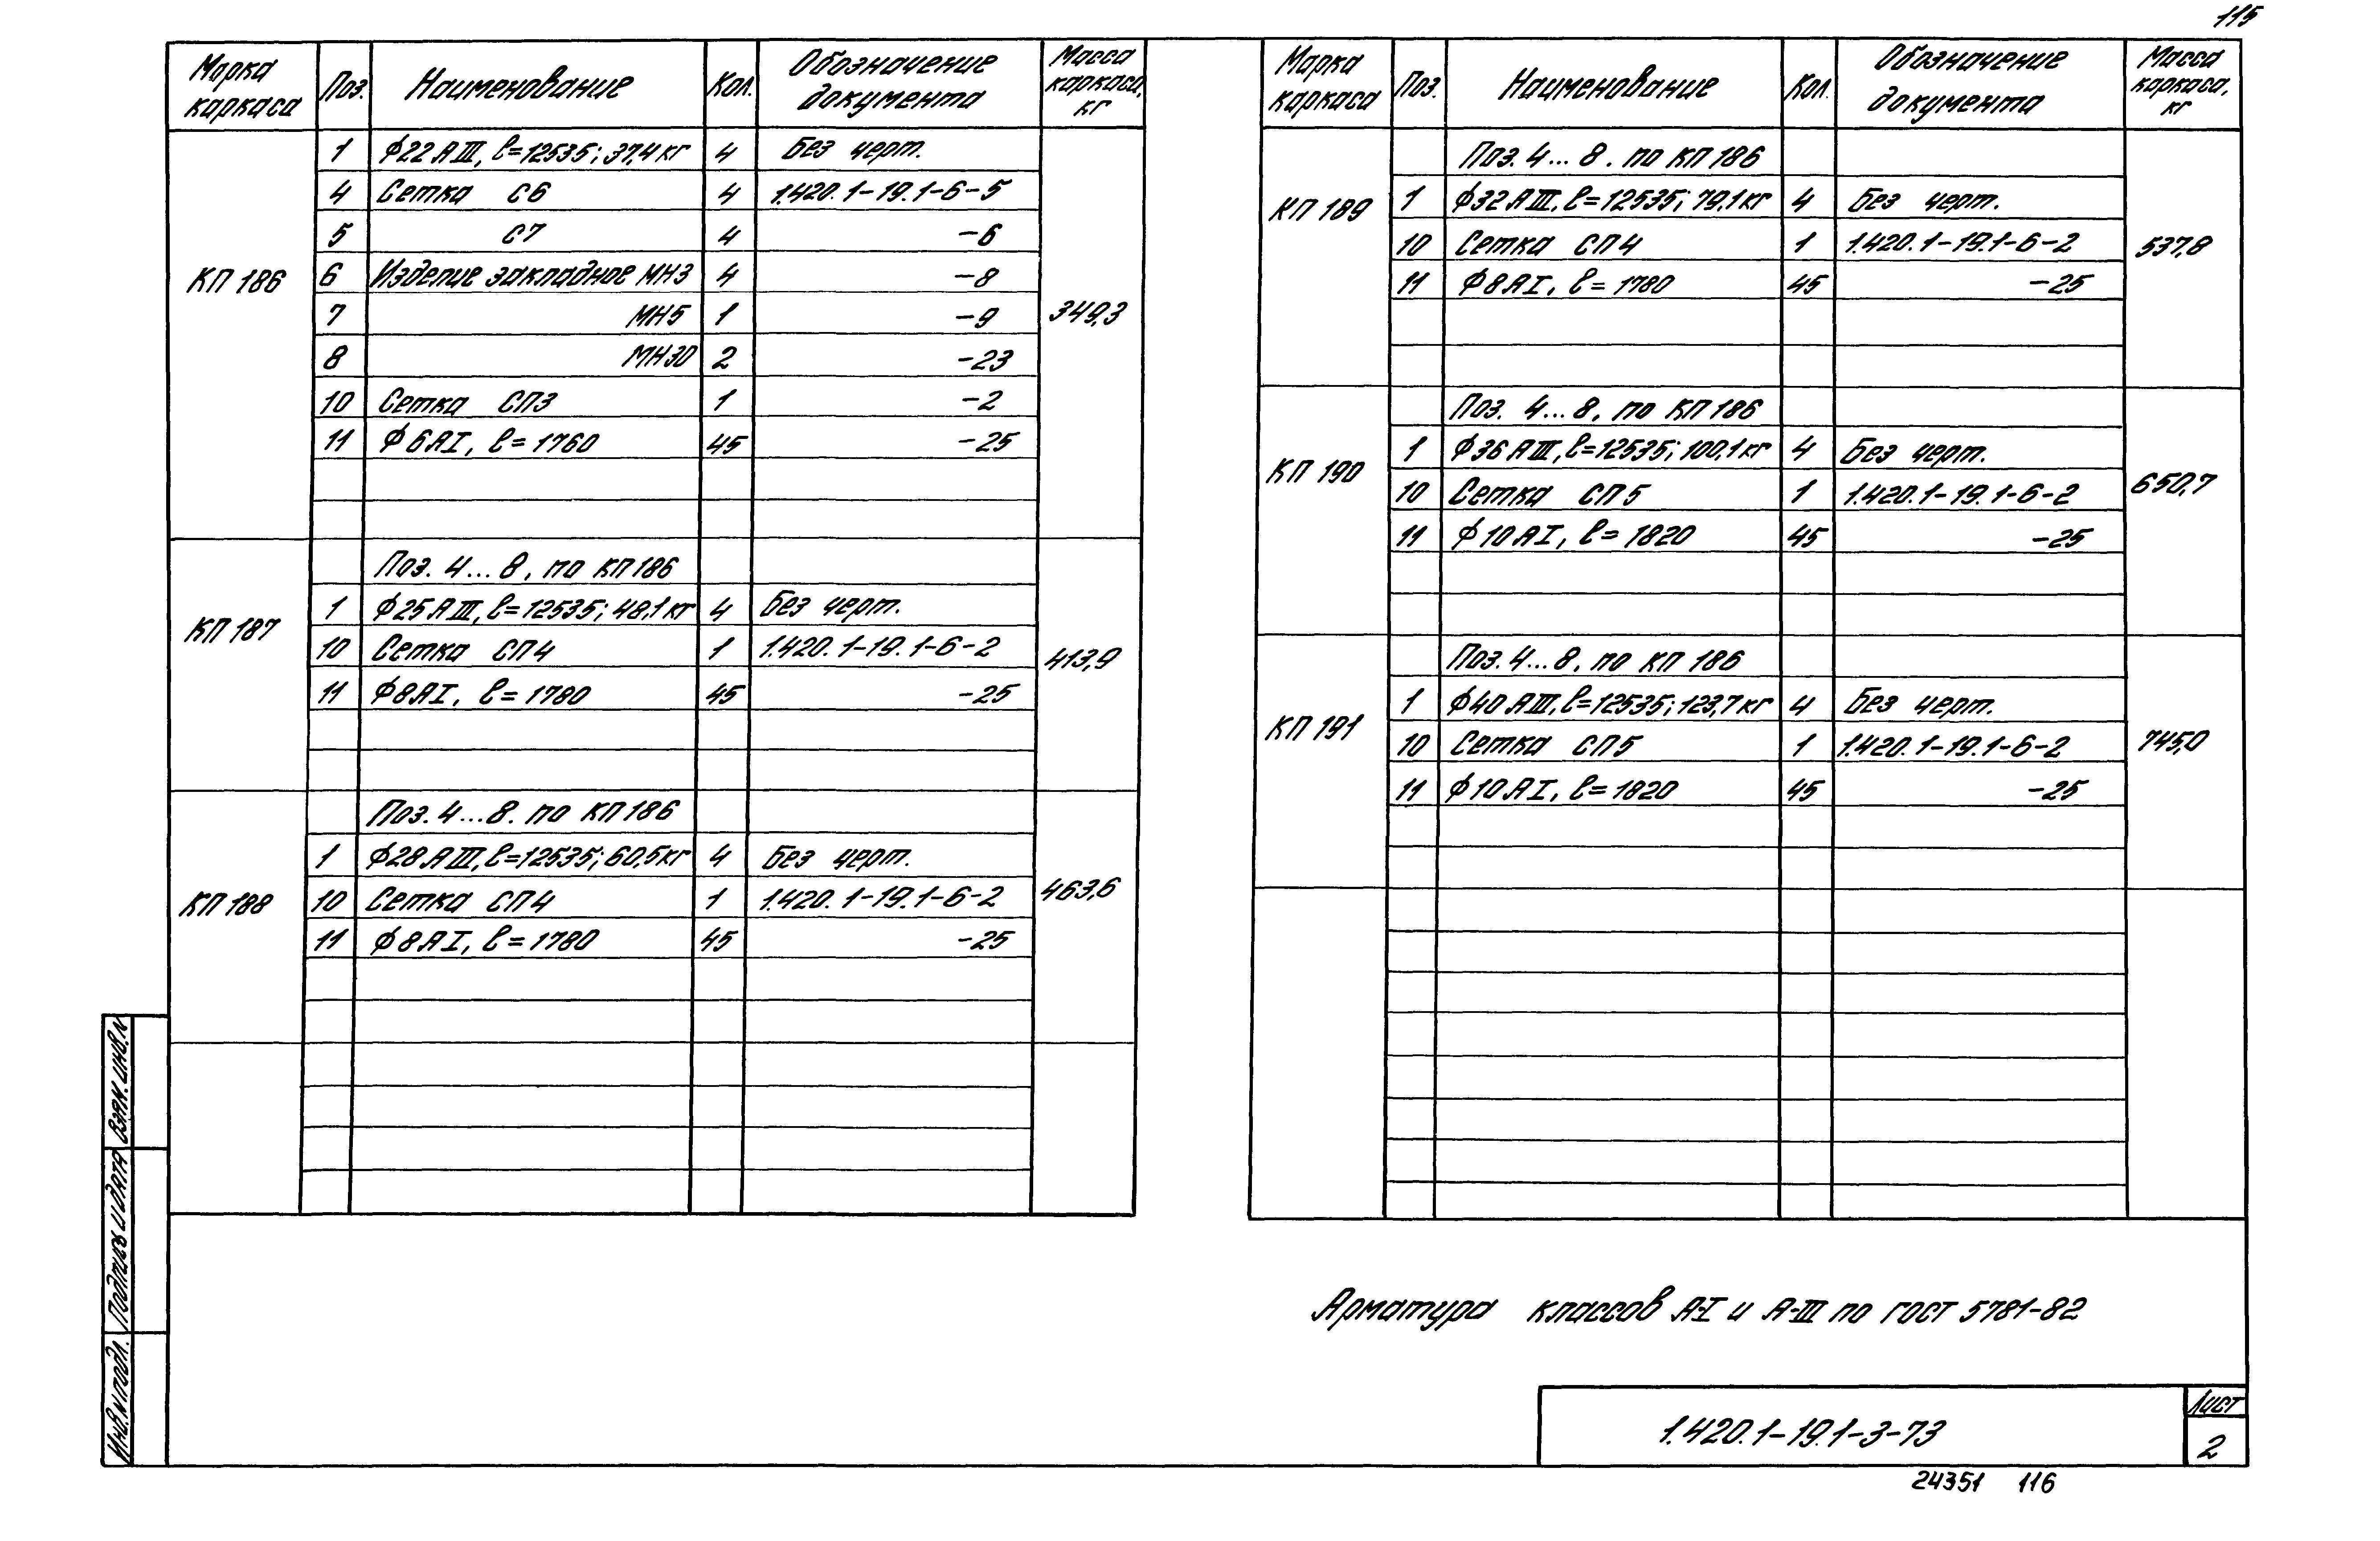 115
Марка каркаса Поз. Наименование Кол. Обозначение документа Масса каркаса, кг
КП 186
1 ф22АIII, l=12535; 37,4кг 4 Без черт.
4 Сетка С6 4 1.420.1-19.1-6-5
5 С7 4 -6
6 Изделие закладное МН3 4 -8
7 МН5 1 -9
349,3
8 МН30 2 -23
10 Сетка СП3 1 -2
11 ф6АI, l=1760 45 -25
КП 187
Поз. 4...8, по КП186
1 ф25АIII, l=12535; 48,1кг 4 Без черт.
10 Сетка СП4 1 1.420.1-19.1-6-2
413,9
11 ф8АI, l=1780 45 -25
КП 188
Поз. 4...8. по КП186
1 ф28АIII, l=12535; 60,5кг 4 Без черт.
10 Сетка СП4 1 1.420.1-19.1-6-2
463,6
11 ф8АI, l=1780 45 -25
Марка каркаса Поз. Наименование Кол. Обозначение документа Масса каркаса, кг
КП 189
Поз. 4...8. по КП186
1 ф32АIII, l=12535; 79,1кг 4 Без черт.
10 Сетка СП4 1 1.420.1-19.1-6-2
537,8
11 ф8АI, l=1780 45 -25
КП 190
Поз. 4...8, по КП186
1 ф36АIII, l=12535; 100,1кг 4 Без черт.
10 Сетка СП5 1 1.420.1-19.1-6-2
650,7
11 ф10АI, l=1820 45 -25
КП 191
Поз. 4...8, по КП 186
1 ф40АIII, l=12535; 123,7кг 4 Без черт.
10 Сетка СП5 1 1.420.1-19.1-6-2
745,0
11 ф10АI, l=1820 45 -25
Арматура классов А-I и А-III по ГОСТ 5781-82
1.420.1-19.1-3-73
Лист
2
24351 116
Инв.N подл.
Подпись и дата
Взам.инв.N